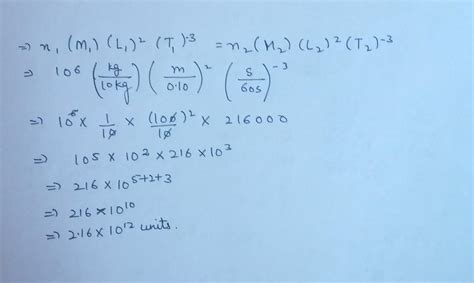 ⇒ n₁ (M₁) (L₁)² (T₁)⁻³ = n₂ (M₂) (L₂)² (T₂)⁻³
⇒ 10⁶ (kg/10kg) (m/0.10)² (s/60s)⁻³
⇒ 10⁶ × 1/10 × (100/10)² × 216000
⇒ 10⁵ × 10² × 216 × 10³
⇒ 216 × 10⁵⁺²⁺³
⇒ 216 × 10¹⁰
⇒ 2.16 × 10¹² units.